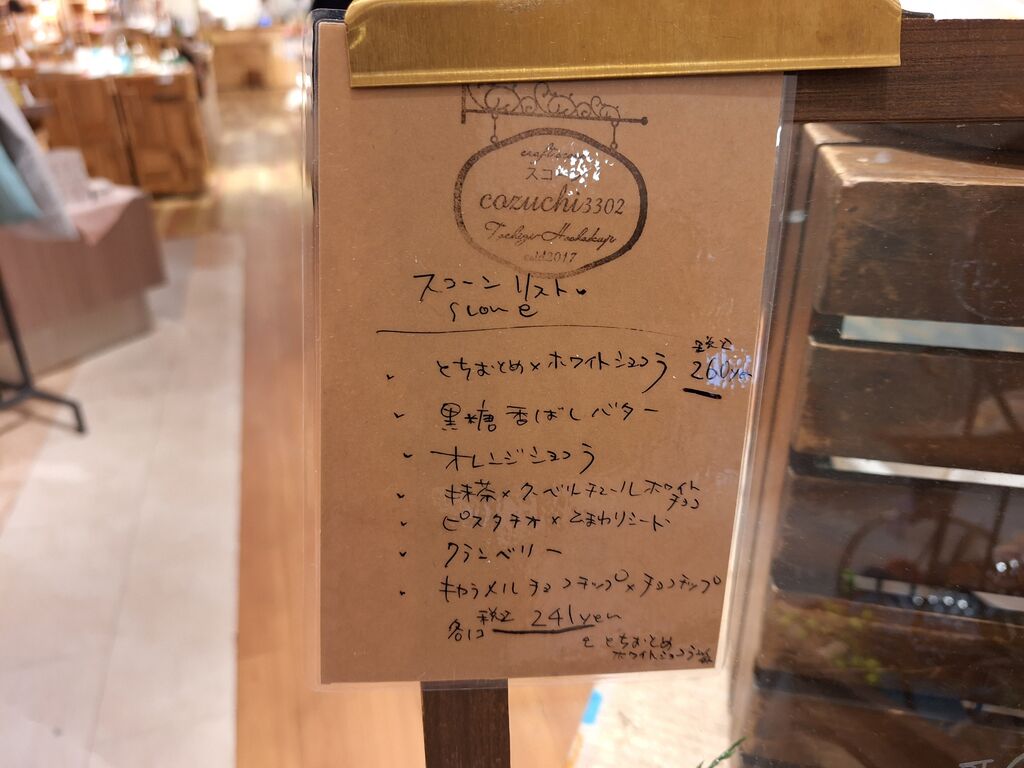 スコ
cozuchi3302
Tochigi Hoshakuji
estd2017
スコーンリスト
scone
とちおとめ×ホワイトショコラ
税込
260yen
黒糖香ばしバター
オレンジショコラ
抹茶×クーベルチュールホワイト
チョコ
ピスタチオ×ひまわりシード
クランベリー
キャラメルチョコチップ×チョコチップ
各1コ 税込 241yen
とちおとめ
ホワイトショコラ